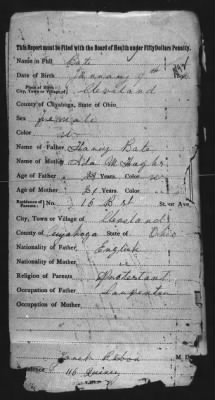 This Report to be Filed with the Board of Health under Fifty Dollars Penalty.
Name in Full, Bate
Date of Birth January 9th
Place of Birth
City, Town or Village of Cleveland
County of Cuyahoga, State of Ohio.
Sex female
Color w
Name of Father, Harry Bate
Name of Mother, Ada
Age of Father, Years. Color w
Age of Mother, Years. Color
Residence of Parents, No. 16 B st St. or Ave.
City, Town or Village of Cleveland
County of Cuyahoga State of Ohio
Nationality of Father, English
Nationality of Mother,
Religion of Parents, Protestant
Occupation of Father, Carpenter
Occupation of Mother,
Sarah M.D.
116 Quincy